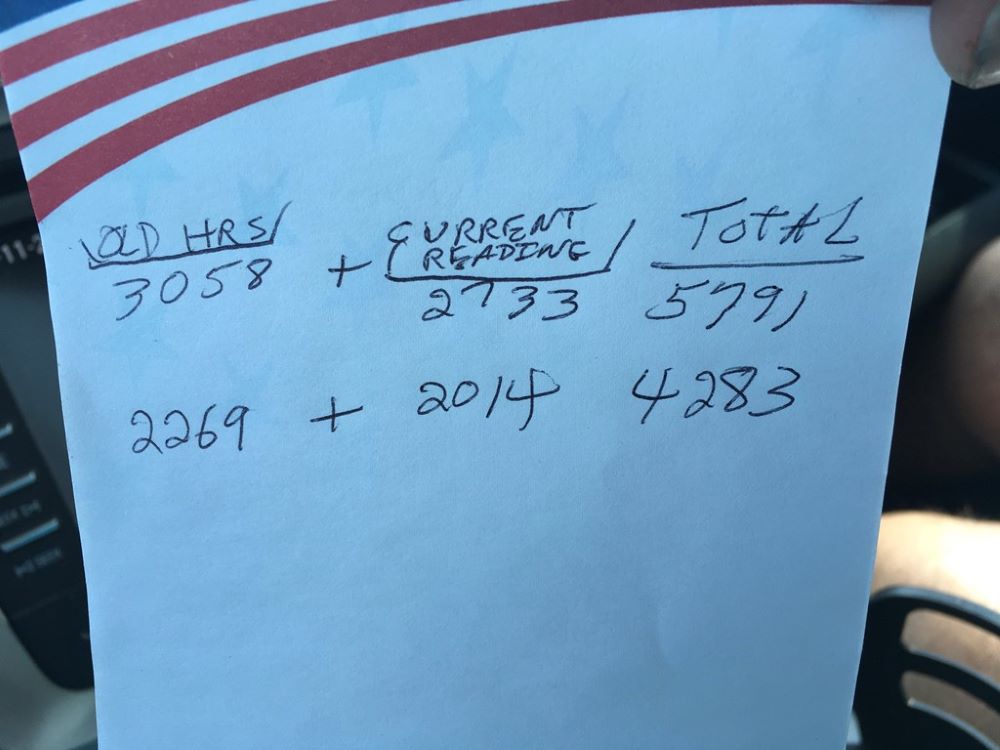 OLD HRS + CURRENT READING TOTAL
3058 2733 5791
2269 + 2014 4283